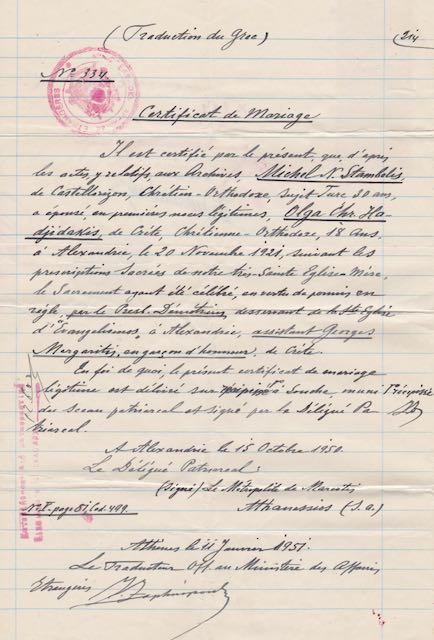 (Traduction du Grec)
214
No 334.
Certificat de Mariage
Il est certifié par le présent, que, d'après
les actes y relatifs aux Archives, Michel N. Stambolis,
de Castellorizon, Chrétien-Orthodoxe, Sujet Turc 30 ans,
a épousé, en premiers noces légitimes, Olga Chr. Ha-
djidakis, de Crète, Chrétienne-Orthodoxe, 18 Ans,
à Alexandrie, le 20 Novembre 1921, suivant les
prescriptions Sacrées de notre très-Sainte Eglise-Mère,
le Sacrement ayant été célébré, en vertu de permis en
règle, par le Prest. Démétrius, desservant de la Ste Eglise
d'"Evangelismos" à Alexandrie, assistant Georges
Margaritis, en garçon d'honneur, de Crète.
En foi de quoi, le présent certificat de mariage
légitime est délivré sur à Souche, muni
du Sceau patriarcal et signé par le Délégué Pa-
triarcal.
A Alexandrie le 15 Octobre 1950.
Le Délégué Patriarcal:
(Signé) Le Métropolite de Mareotis
No page 81, Cod. 499.
Athanassios (S.a.)
Athènes le 11 Janvier 1951.
Le Traducteur Off. au Ministère des Affaires
Etrangères